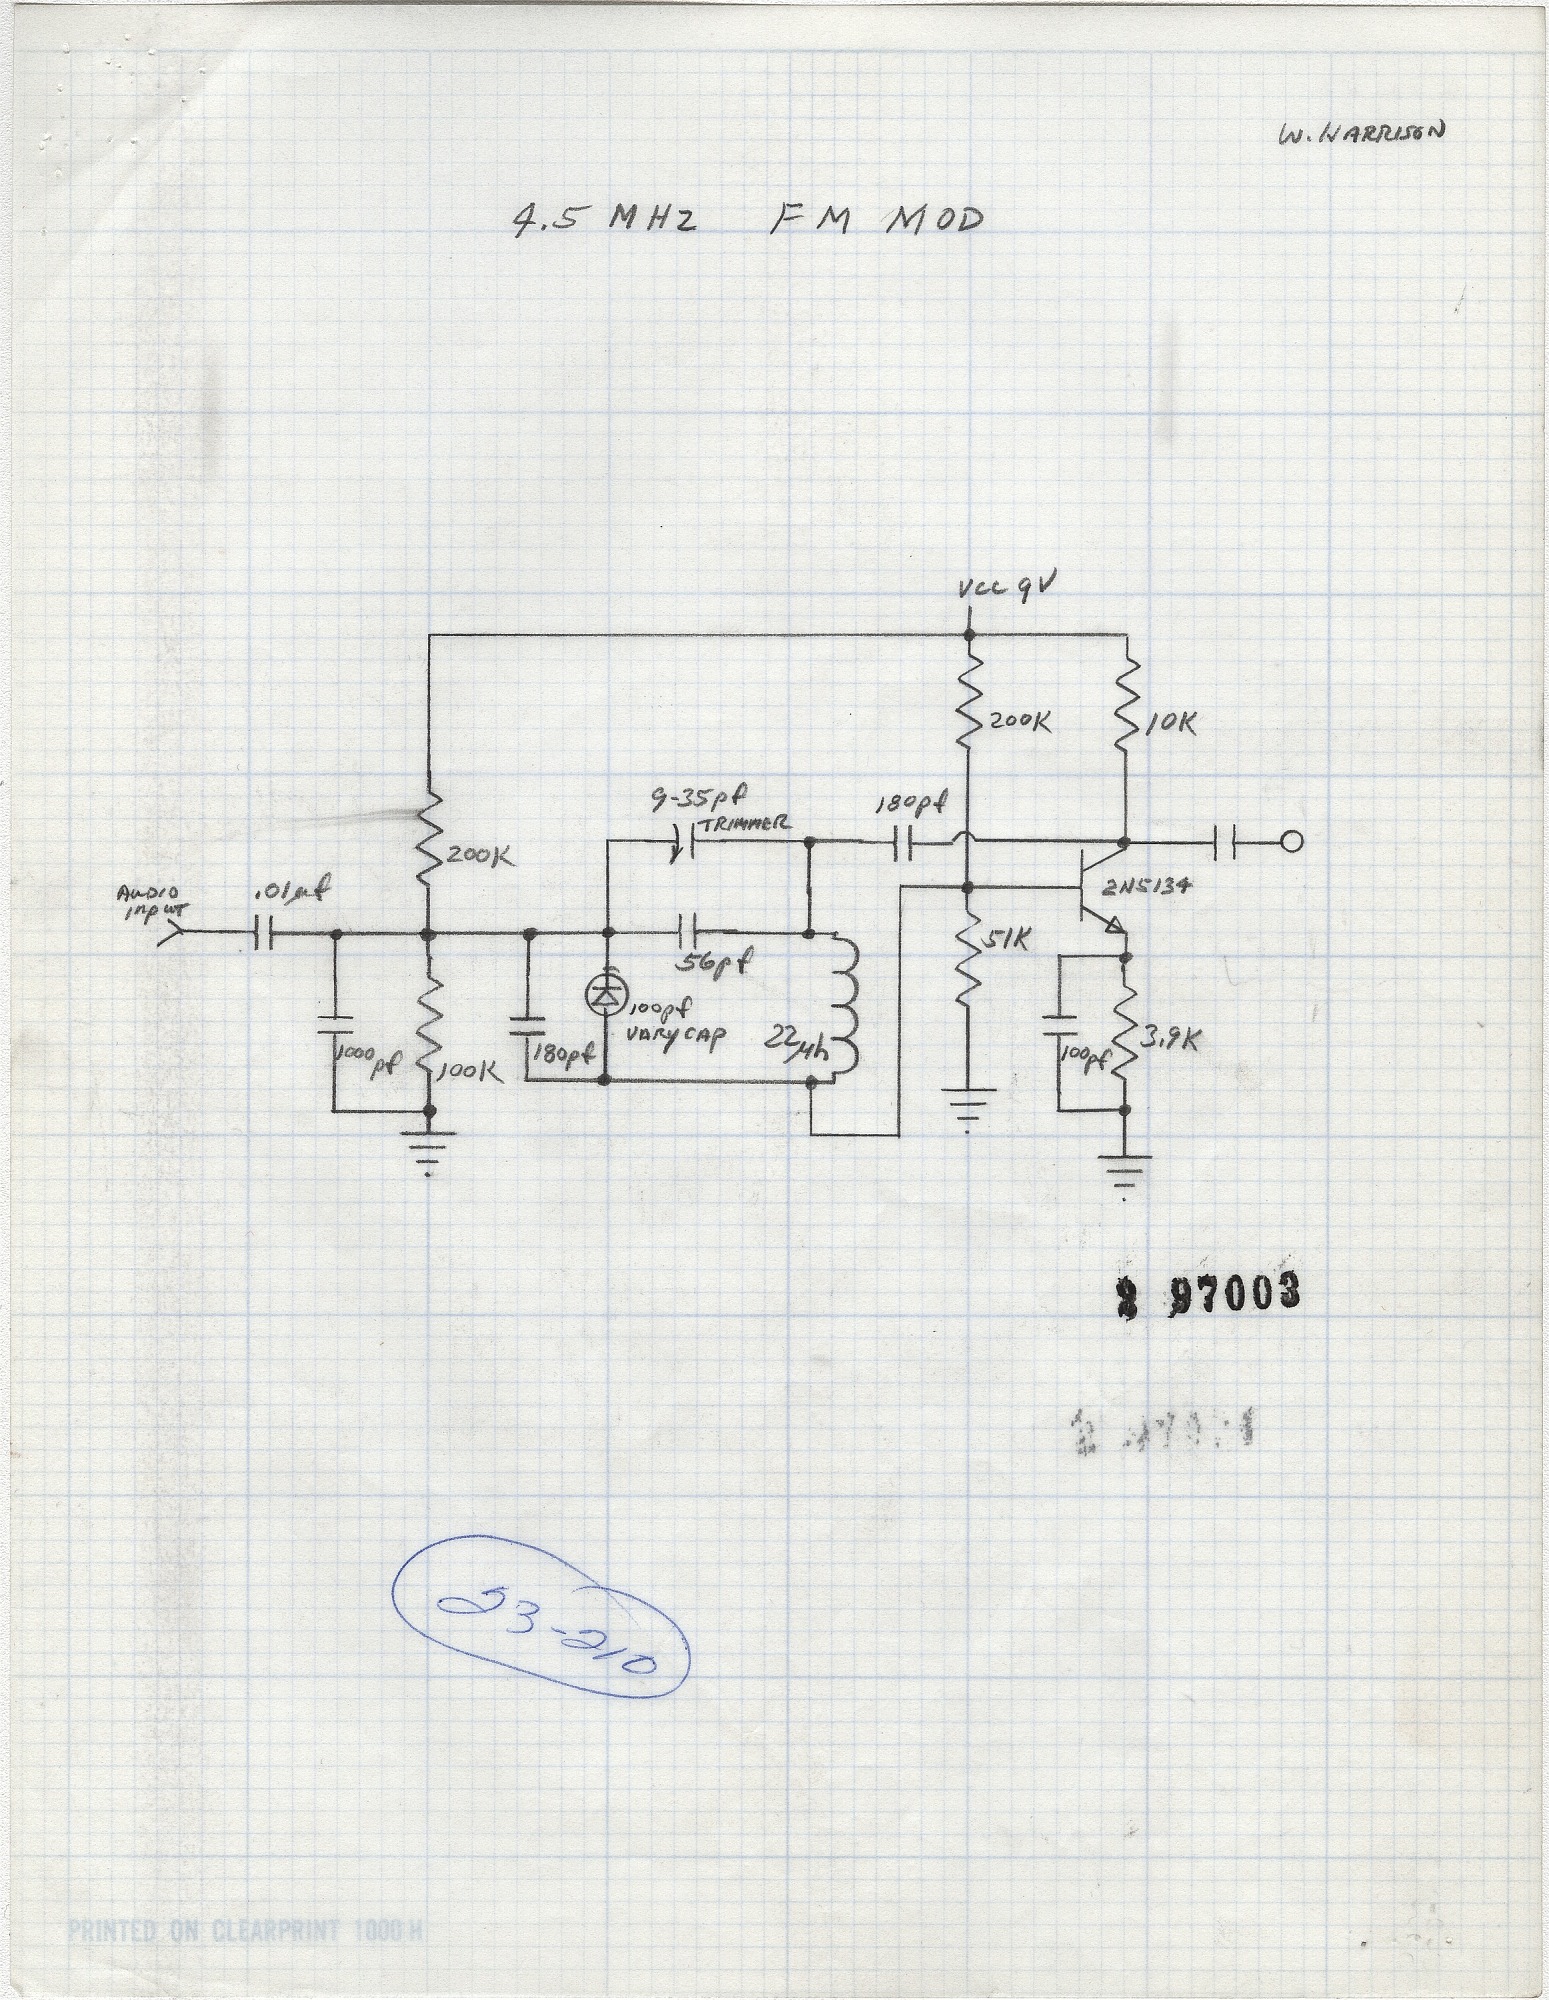 W. HARRISON
4.5 MHz FM MOD
VCC 9V
200K
10K
9-35pf
TRIMMER
180pf
200K
2N5134
AUDIO
INPUT
.01µf
56pf
51K
100pf
VARYCAP
22µh
1000
pf
100K
180pf
100pf
3.9K
97003
23-210
PRINTED ON CLEARPRINT 1000 H